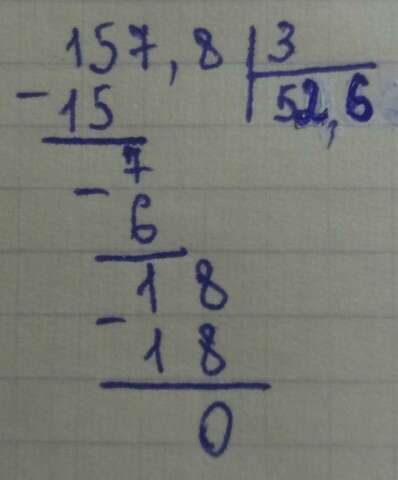 157,8 3
-15 52,6
7
-6
18
-18
0